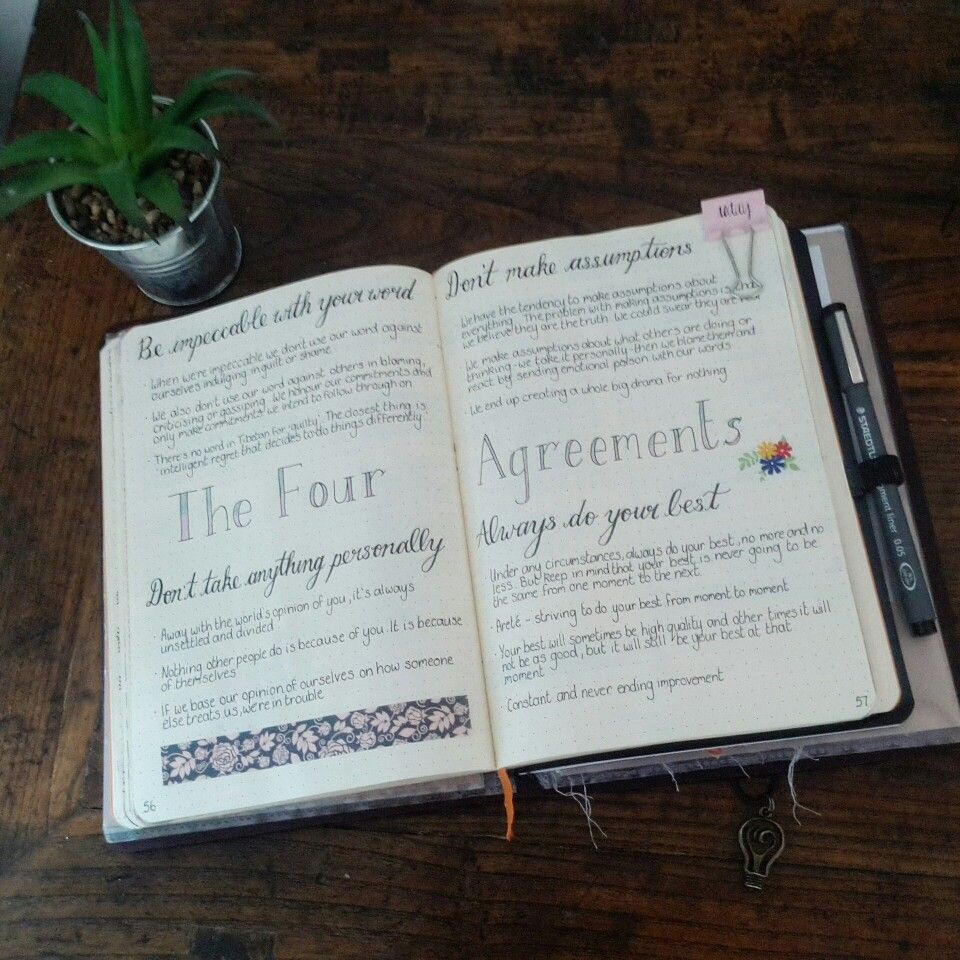 Be impeccable with your word
· When we're impeccable we don't use our word against
ourselves indulging in guilt or shame
· We also don't use our word against others in blaming,
criticising or gossiping. We honour our commitments and
only make commitments we intend to follow through on
· There's no word in Tibetan for 'guilty'. The closest thing is
'intelligent regret that decides to do things differently'
The Four
Don't take anything personally
· Away with the world's opinion of you, it's always
unsettled and divided
· Nothing other people do is because of you. It is because
of themselves
· If we base our opinion of ourselves on how someone
else treats us, we're in trouble
56
Don't make assumptions
· We have the tendency to make assumptions about
everything. The problem with making assumptions is
we believe they are the truth. We could swear they are real
· We make assumptions about what others are doing or
thinking - we take it personally - then we blame them and
react by sending emotional poison with our words
· We end up creating a whole big drama for nothing
Agreements
Always do your best
· Under any circumstances, always do your best, no more and no
less. But keep in mind that your best is never going to be
the same from one moment to the next
· Areté - striving to do your best from moment to moment
· Your best will sometimes be high quality and other times it will
not be as good, but it will still be your best at that
moment
· Constant and never ending improvement
57
STAEDTLER
ment liner 0.05